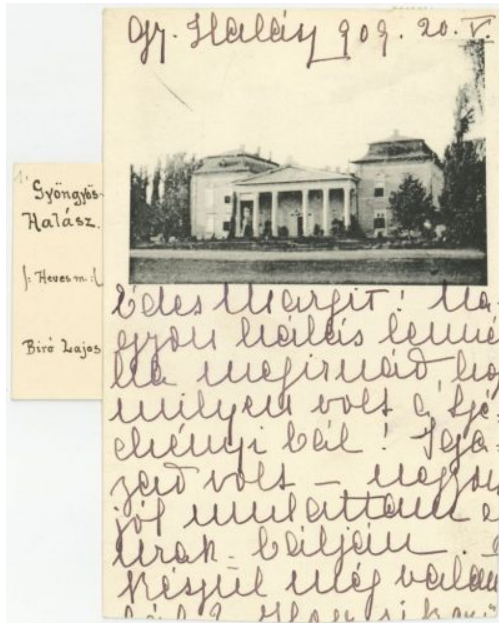 Gy. Halász 909. 20. V.
1.
Gyöngyös-
Halász.
/: Heves m :/
Biró Lajos
Édes Margit! Na-
gyon hálás lenné
ha megirnád, ho
milyen volt a Szé-
chényi bál! Iga-
zad volt – nagyon
jól mulattam a
urak bálján.
Készül még valam